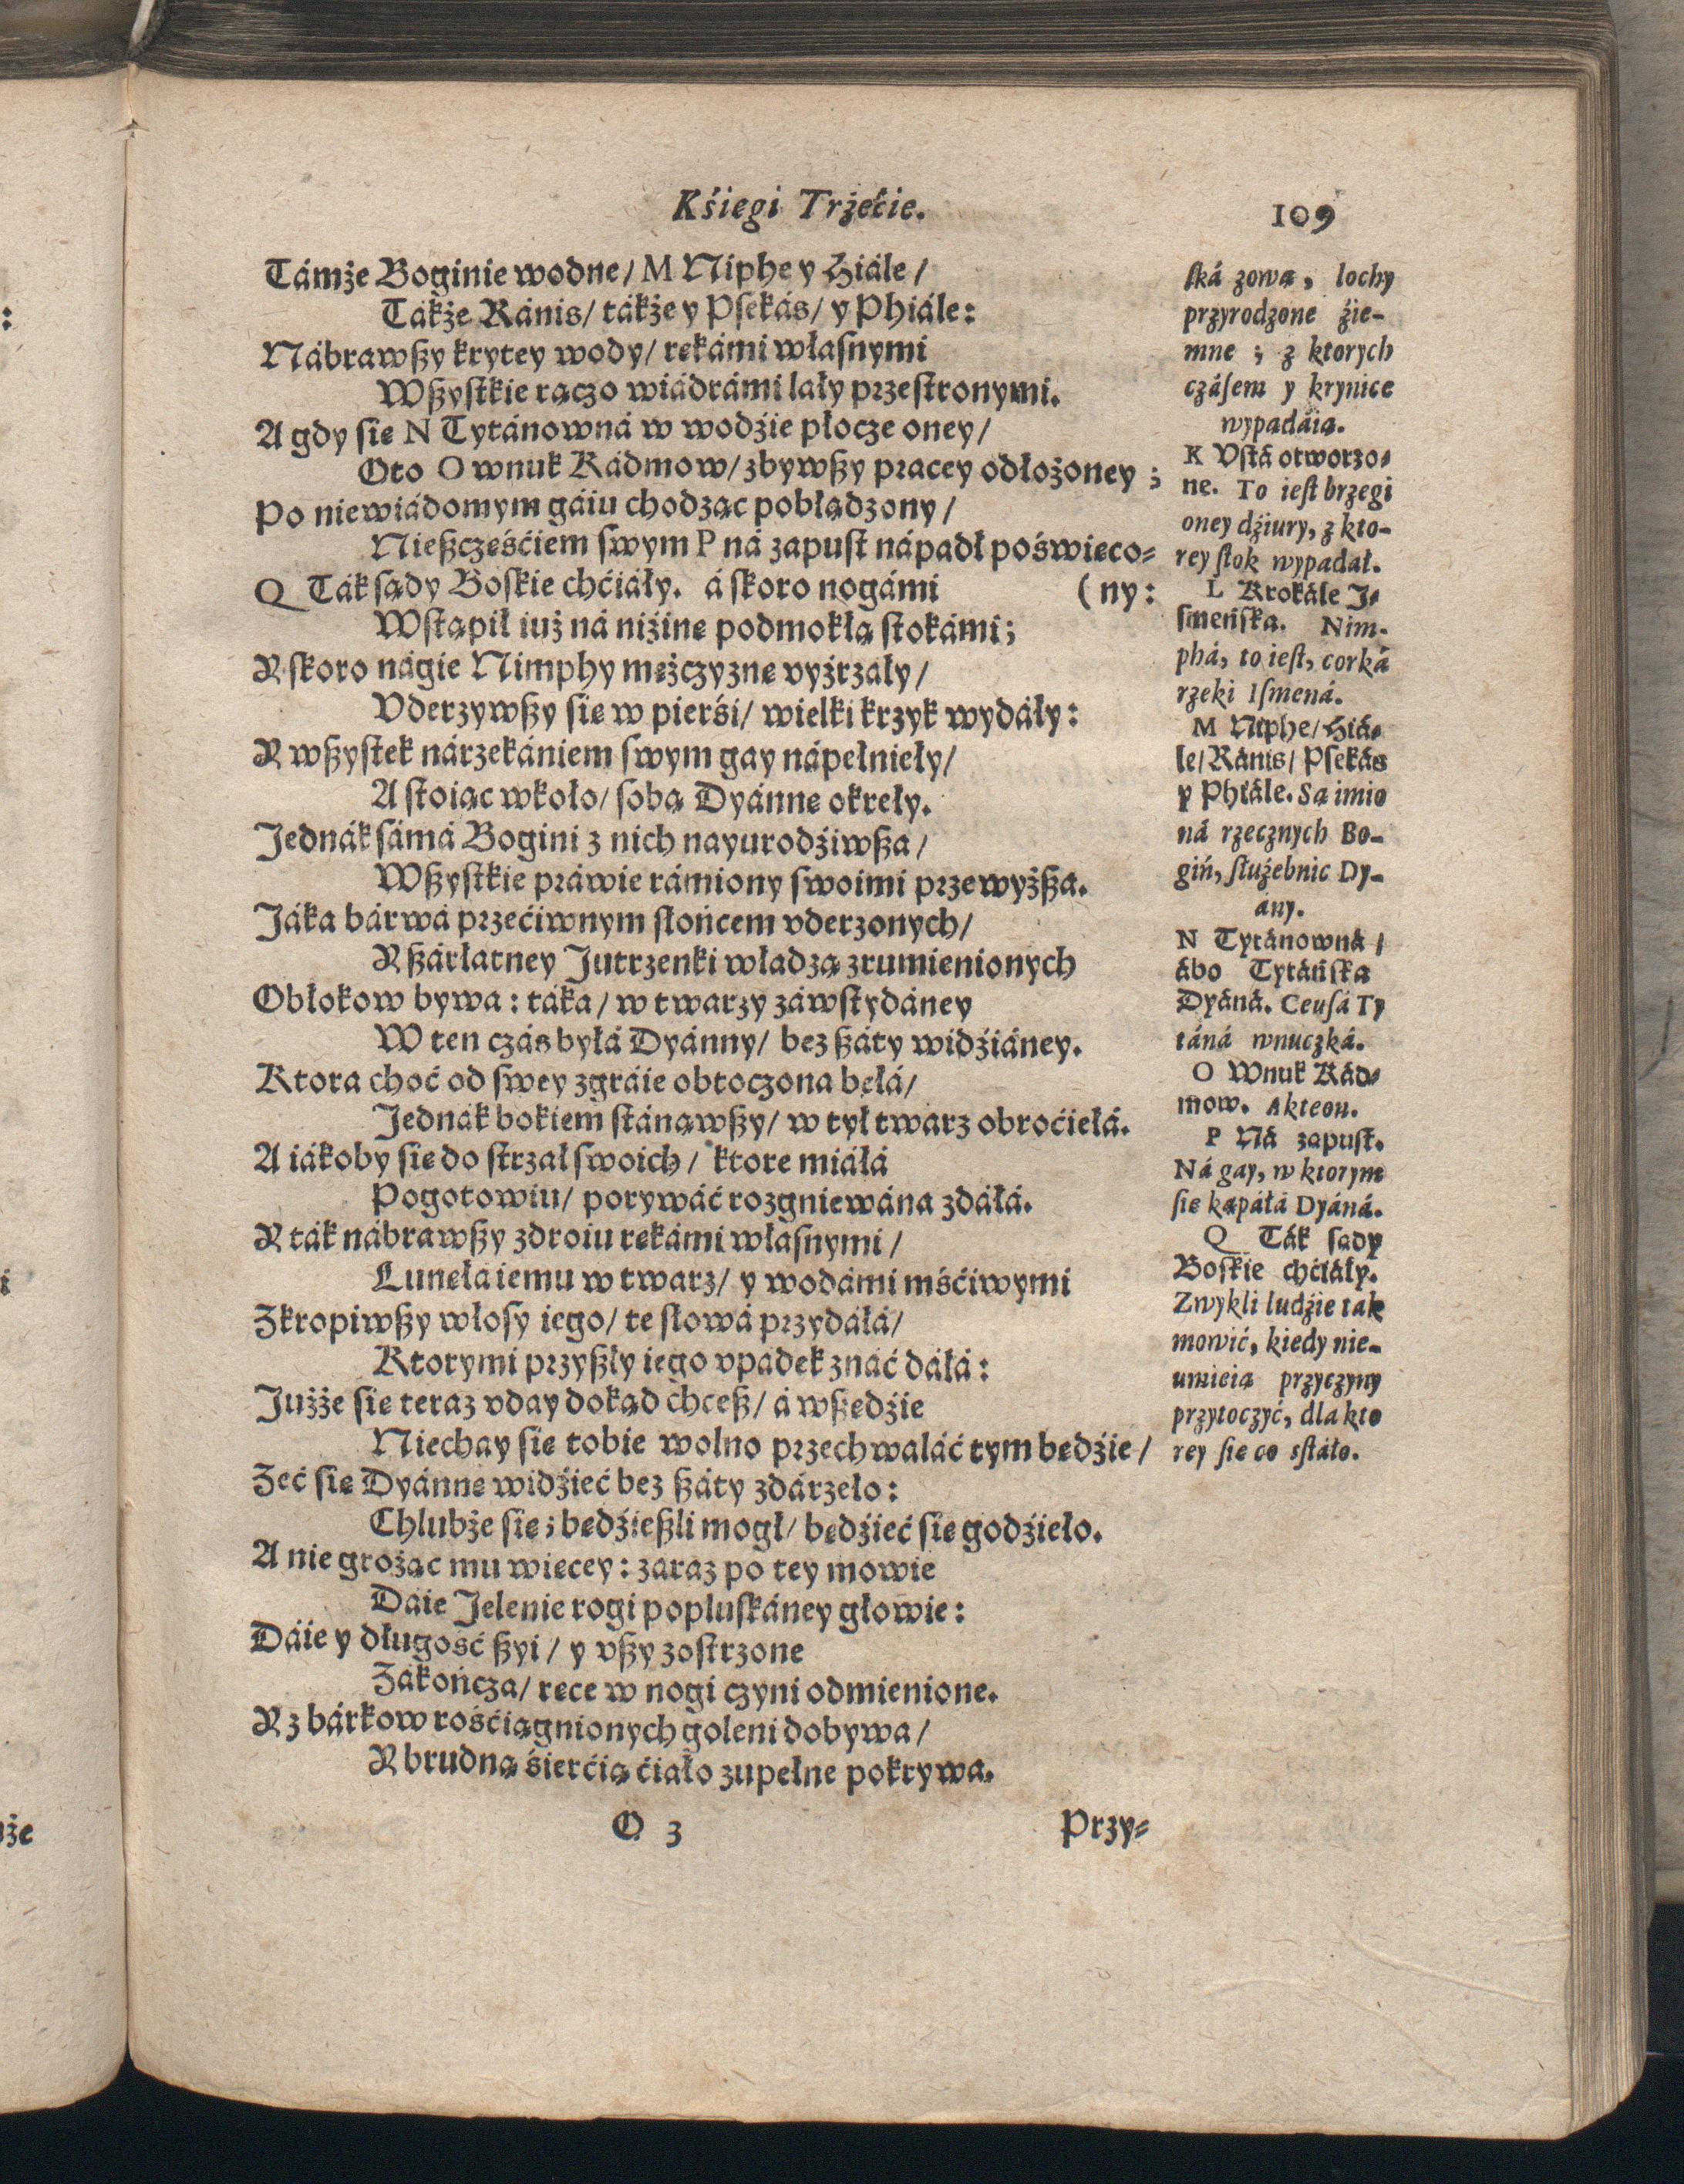 Kśiegi Trzećie.
109
Támże Boginie wodne/ M Niphe y Hiále/
Tákże Ránis/ tákże y Psekás/ y Phiále:
Nábrawßy krytey wody/ rękámi własnymi
Wßystkie rączo wiádrámi lały przestronymi.
A gdy się N Tytánowná w wodźie płocze oney/
Oto O wnuk Kádmow/ zbywßy pracey odłożoney;
Po niewiádomym gáiu chodząc pobłądzony/
Nießczęśćiem swym P ná zapust nápadł poświęco-
Q Ták sądy Boskie chćiáły. á skoro nogámi (ny:
Wstąpił iuż ná niżine podmokłą stokámi;
A skoro nágie Nimphy mężczyznę vyźrzały/
Vderzywßy się w pierśi/ wielki krzyk wydáły:
A wßystek nárzekániem swym gay nápełnieły/
A stoiąc wkoło/ sobą Dyánnę okreły.
Jednák sámá Bogini z nich nayurodźiwßa/
Wßystkie práwie rámiony swoimi przewyżßa.
Jáka bárwá przećiwnym słońcem vderzonych/
A ßárłatney Jutrzenki władzą zrumienionych
Obłokow bywa: táka/ w twarzy záwstydáney
W ten czás byłá Dyánny/ bez ßáty widźiáney.
Ktora choć od swey zgráie obtoczona bełá/
Jednák bokiem stánąwßy/ w tył twarz obroćiełá.
A iákoby się do strzał swoich/ ktore miáłá
Pogotowiu/ porywáć rozgniewána zdáłá.
A ták nábrawßy zdroiu rękámi własnymi/
Lunęła iemu w twarz/ y wodámi mśćiwymi
Zkropiwßy włosy iego/ te słowá przydáłá/
Ktorymi przyßły iego vpadek znáć dáłá:
Jużże się teraz vday dokąd chceß/ á wßędźie
Niechay się tobie wolno przechwaláć tym będźie/
Żeć się Dyánnę widźieć bez ßáty zdárzeło:
Chlubże się; będźießli mogł/ będźieć się godźieło.
A nie grożąc mu więcey: zaraz po tey mowie
Dáie Jelenie rogi popluskáney głowie:
Dáie y długość ßyi/ y vßy zostrzone
Zákończa/ ręce w nogi czyni odmienione.
A z bárkow rośćiągnionych goleni dobywa/
A brudną śierćią ćiało zupełne pokrywa.
O 3
Przy-
ská zową, lochy
przyrodzone źie-
mne ; z ktorych
czásem y krynice
wypadáią.
K Vstá otworzo-
ne. To iest brzegi
oney dźiury, z kto-
rey stok wypadał.
L Krokále J-
smeńska. Nim-
phá, to iest, corká
rzeki Ismená.
M Niphe/ Hiá-
le/ Ránis/ Psekás
y Phiále. Są imio
ná rzecznych Bo-
giń, służebnic Dy-
ány.
N Tytánowná/
ábo Tytáńska
Dyáná. Ceusá Ty
táná wnuczká.
O Wnuk Kád-
mow. Akteon.
P Ná zapust.
Ná gay, w ktorym
się kąpáłá Dyáná.
Q Ták sądy
Boskie chćiáły.
Zwykli ludźie tak
mowić, kiedy nie-
umieią przyczyny
przytoczyć, dla kto
rey się co sstáło.